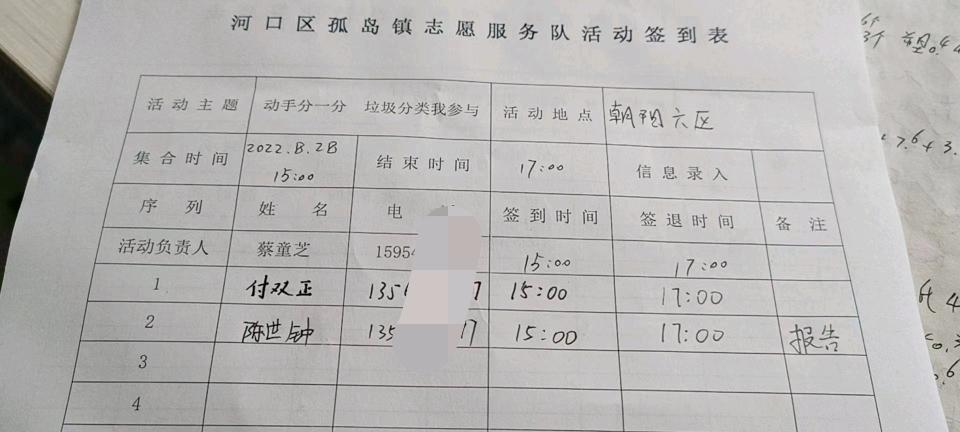 河口区孤岛镇志愿服务队活动签到表
活动主题 动手分一分 垃圾分类我参与 活动地点 朝阳六区
集合时间 2022.8.28 15:00 结束时间 17:00 信息录入
序列 姓名 电 签到时间 签退时间 备注
活动负责人 蔡童芝 15954 15:00 17:00
1 付双正 135 7 15:00 17:00
2 陈世钟 135 17 15:00 17:00 报告
3
4